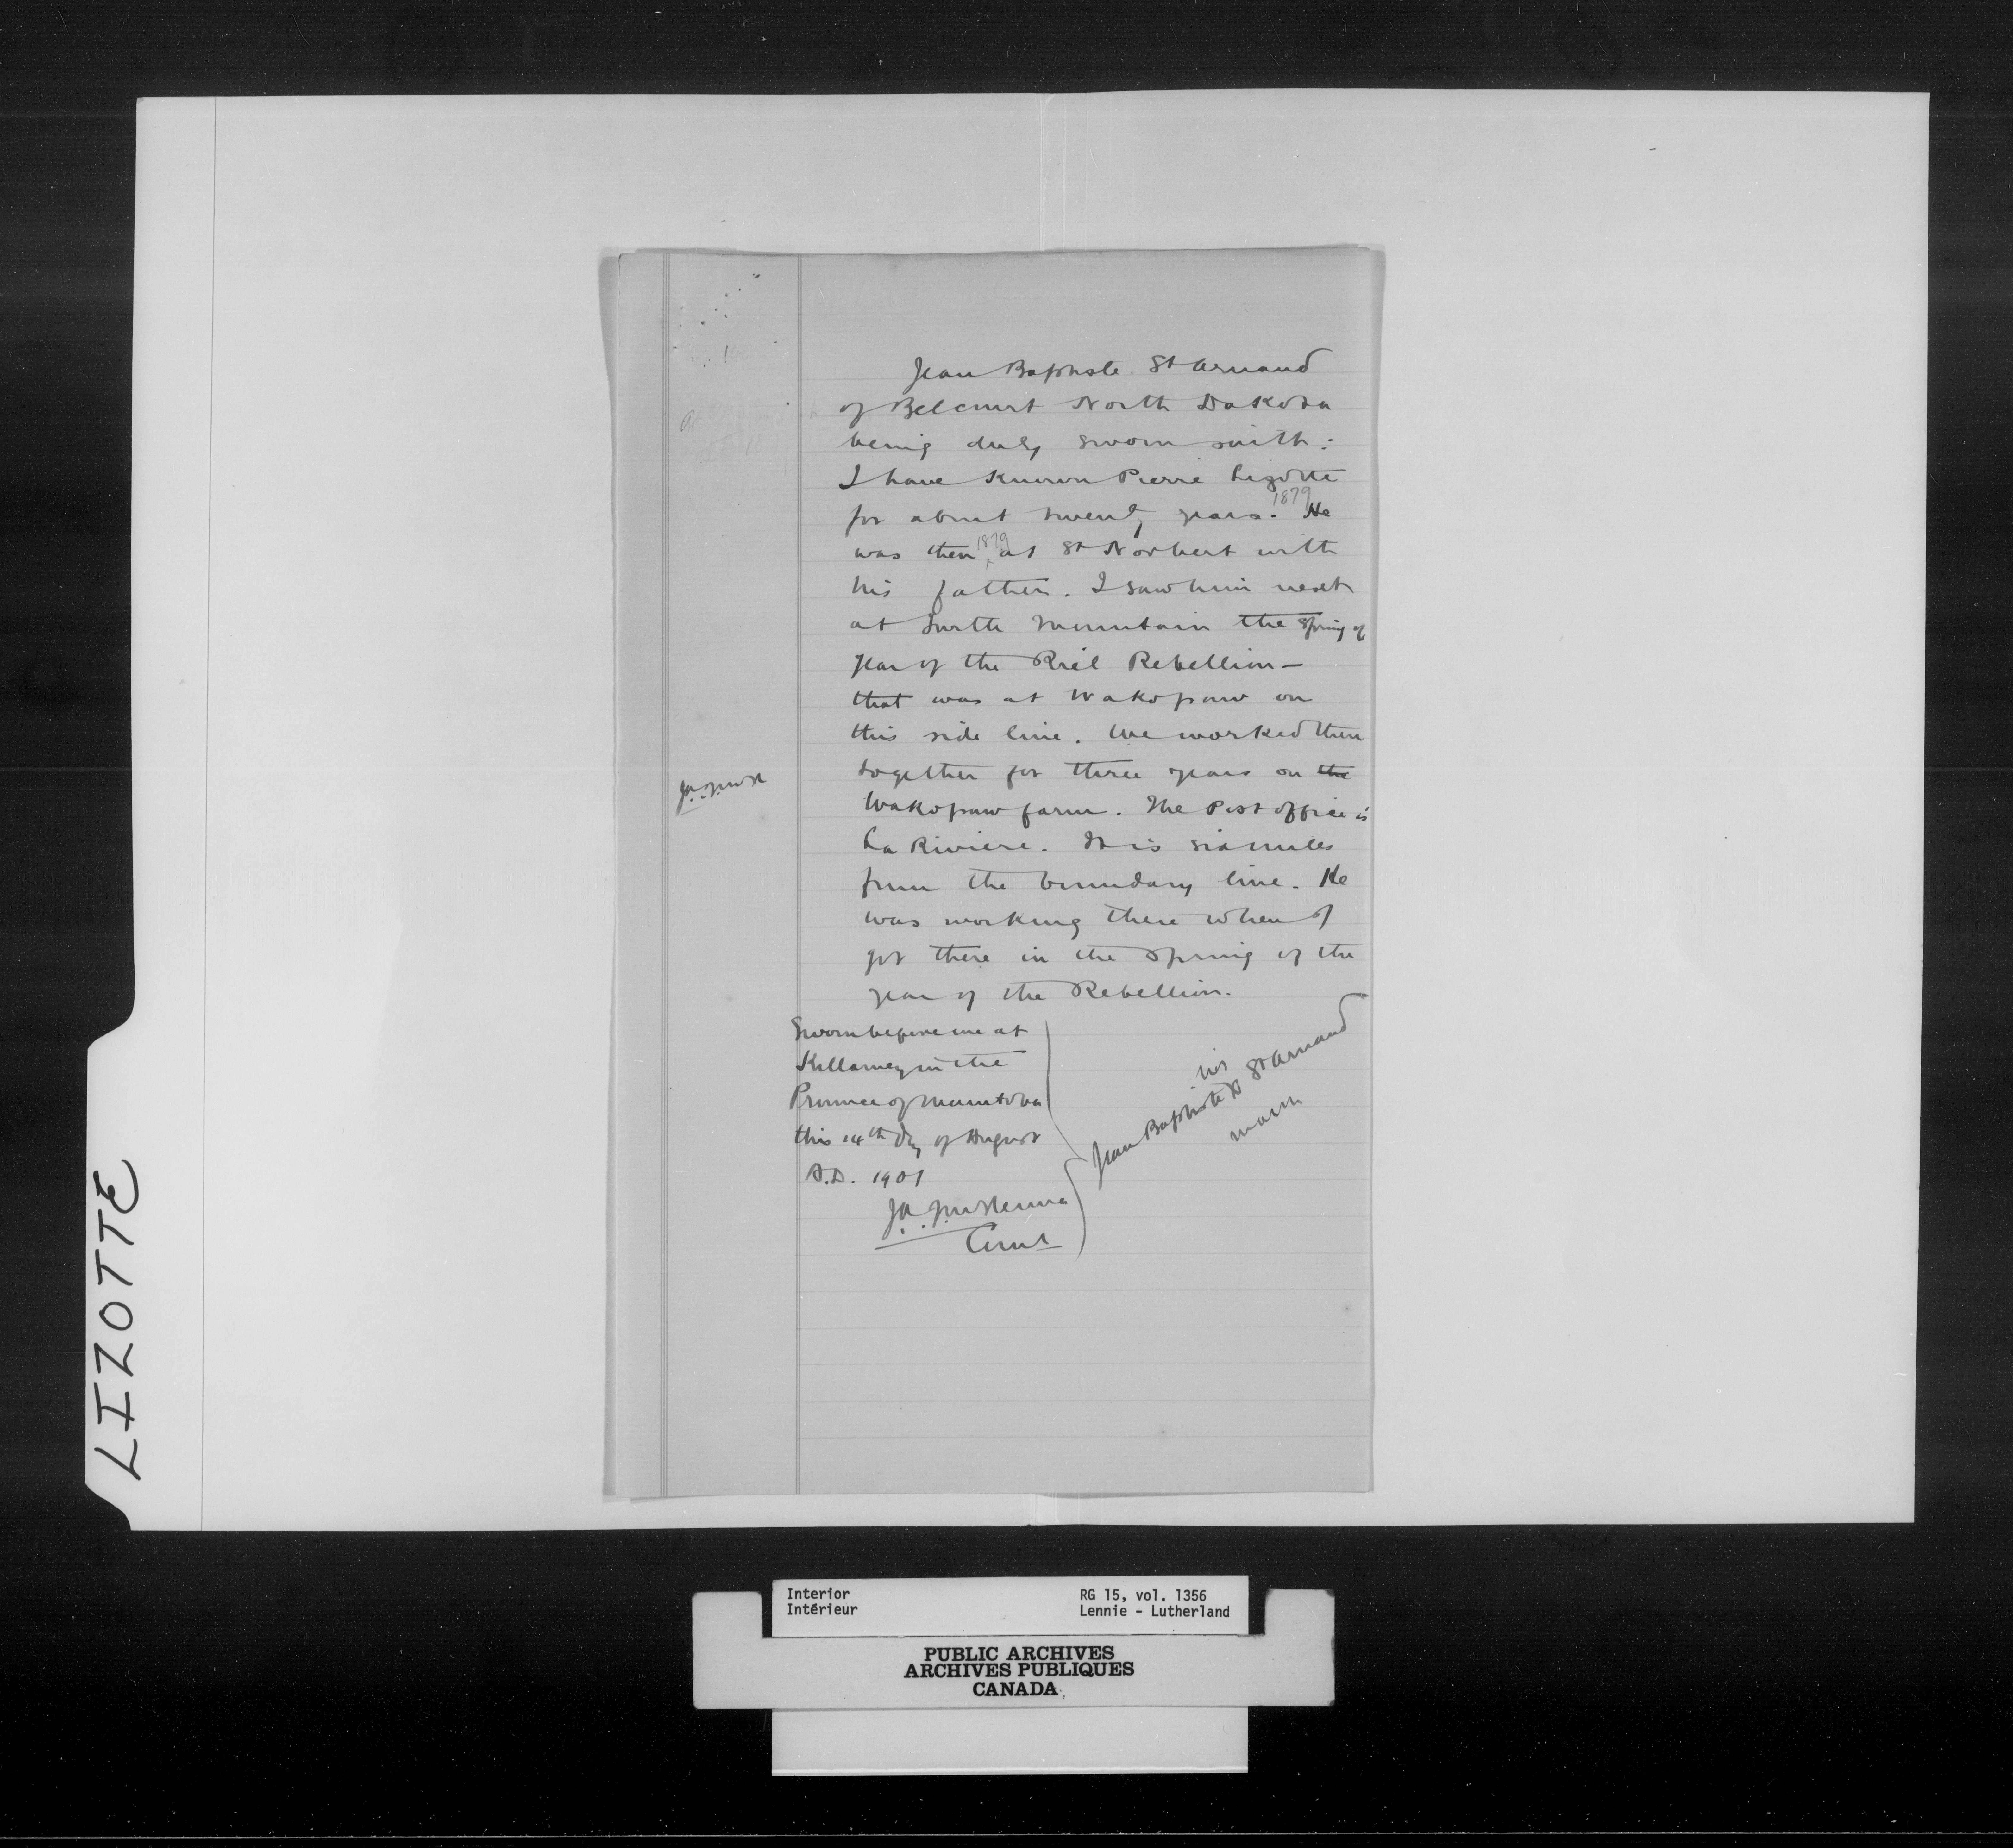 Jean Baptiste St Arnaud
of Belcourt North Dakota
being duly sworn saith:
I have known Pierre Lizotte
for about twenty years. 1879 He
was then 1879 at St Norbert with
his father. I saw him next
at Turtle Mountain the Spring of
year of the Riel Rebellion —
that was at Wakopaw on
this side line. We worked then
together for three years on the
Wakopaw farm. The Post office is
La Riviere. It is six miles
from the boundary line. He
was working there when I
got there in the Spring of the
year of the Rebellion.
Sworn before me at
Killarney in the
Province of Manitoba
this 14th day of August
A.D. 1901
J.A.J. McKenna
Comr
his
Jean Baptiste X St Arnaud
mark
J.A.J. McK
LIZOTTE
Interior
Intérieur
RG 15, vol. 1356
Lennie - Lutherland
PUBLIC ARCHIVES
ARCHIVES PUBLIQUES
CANADA